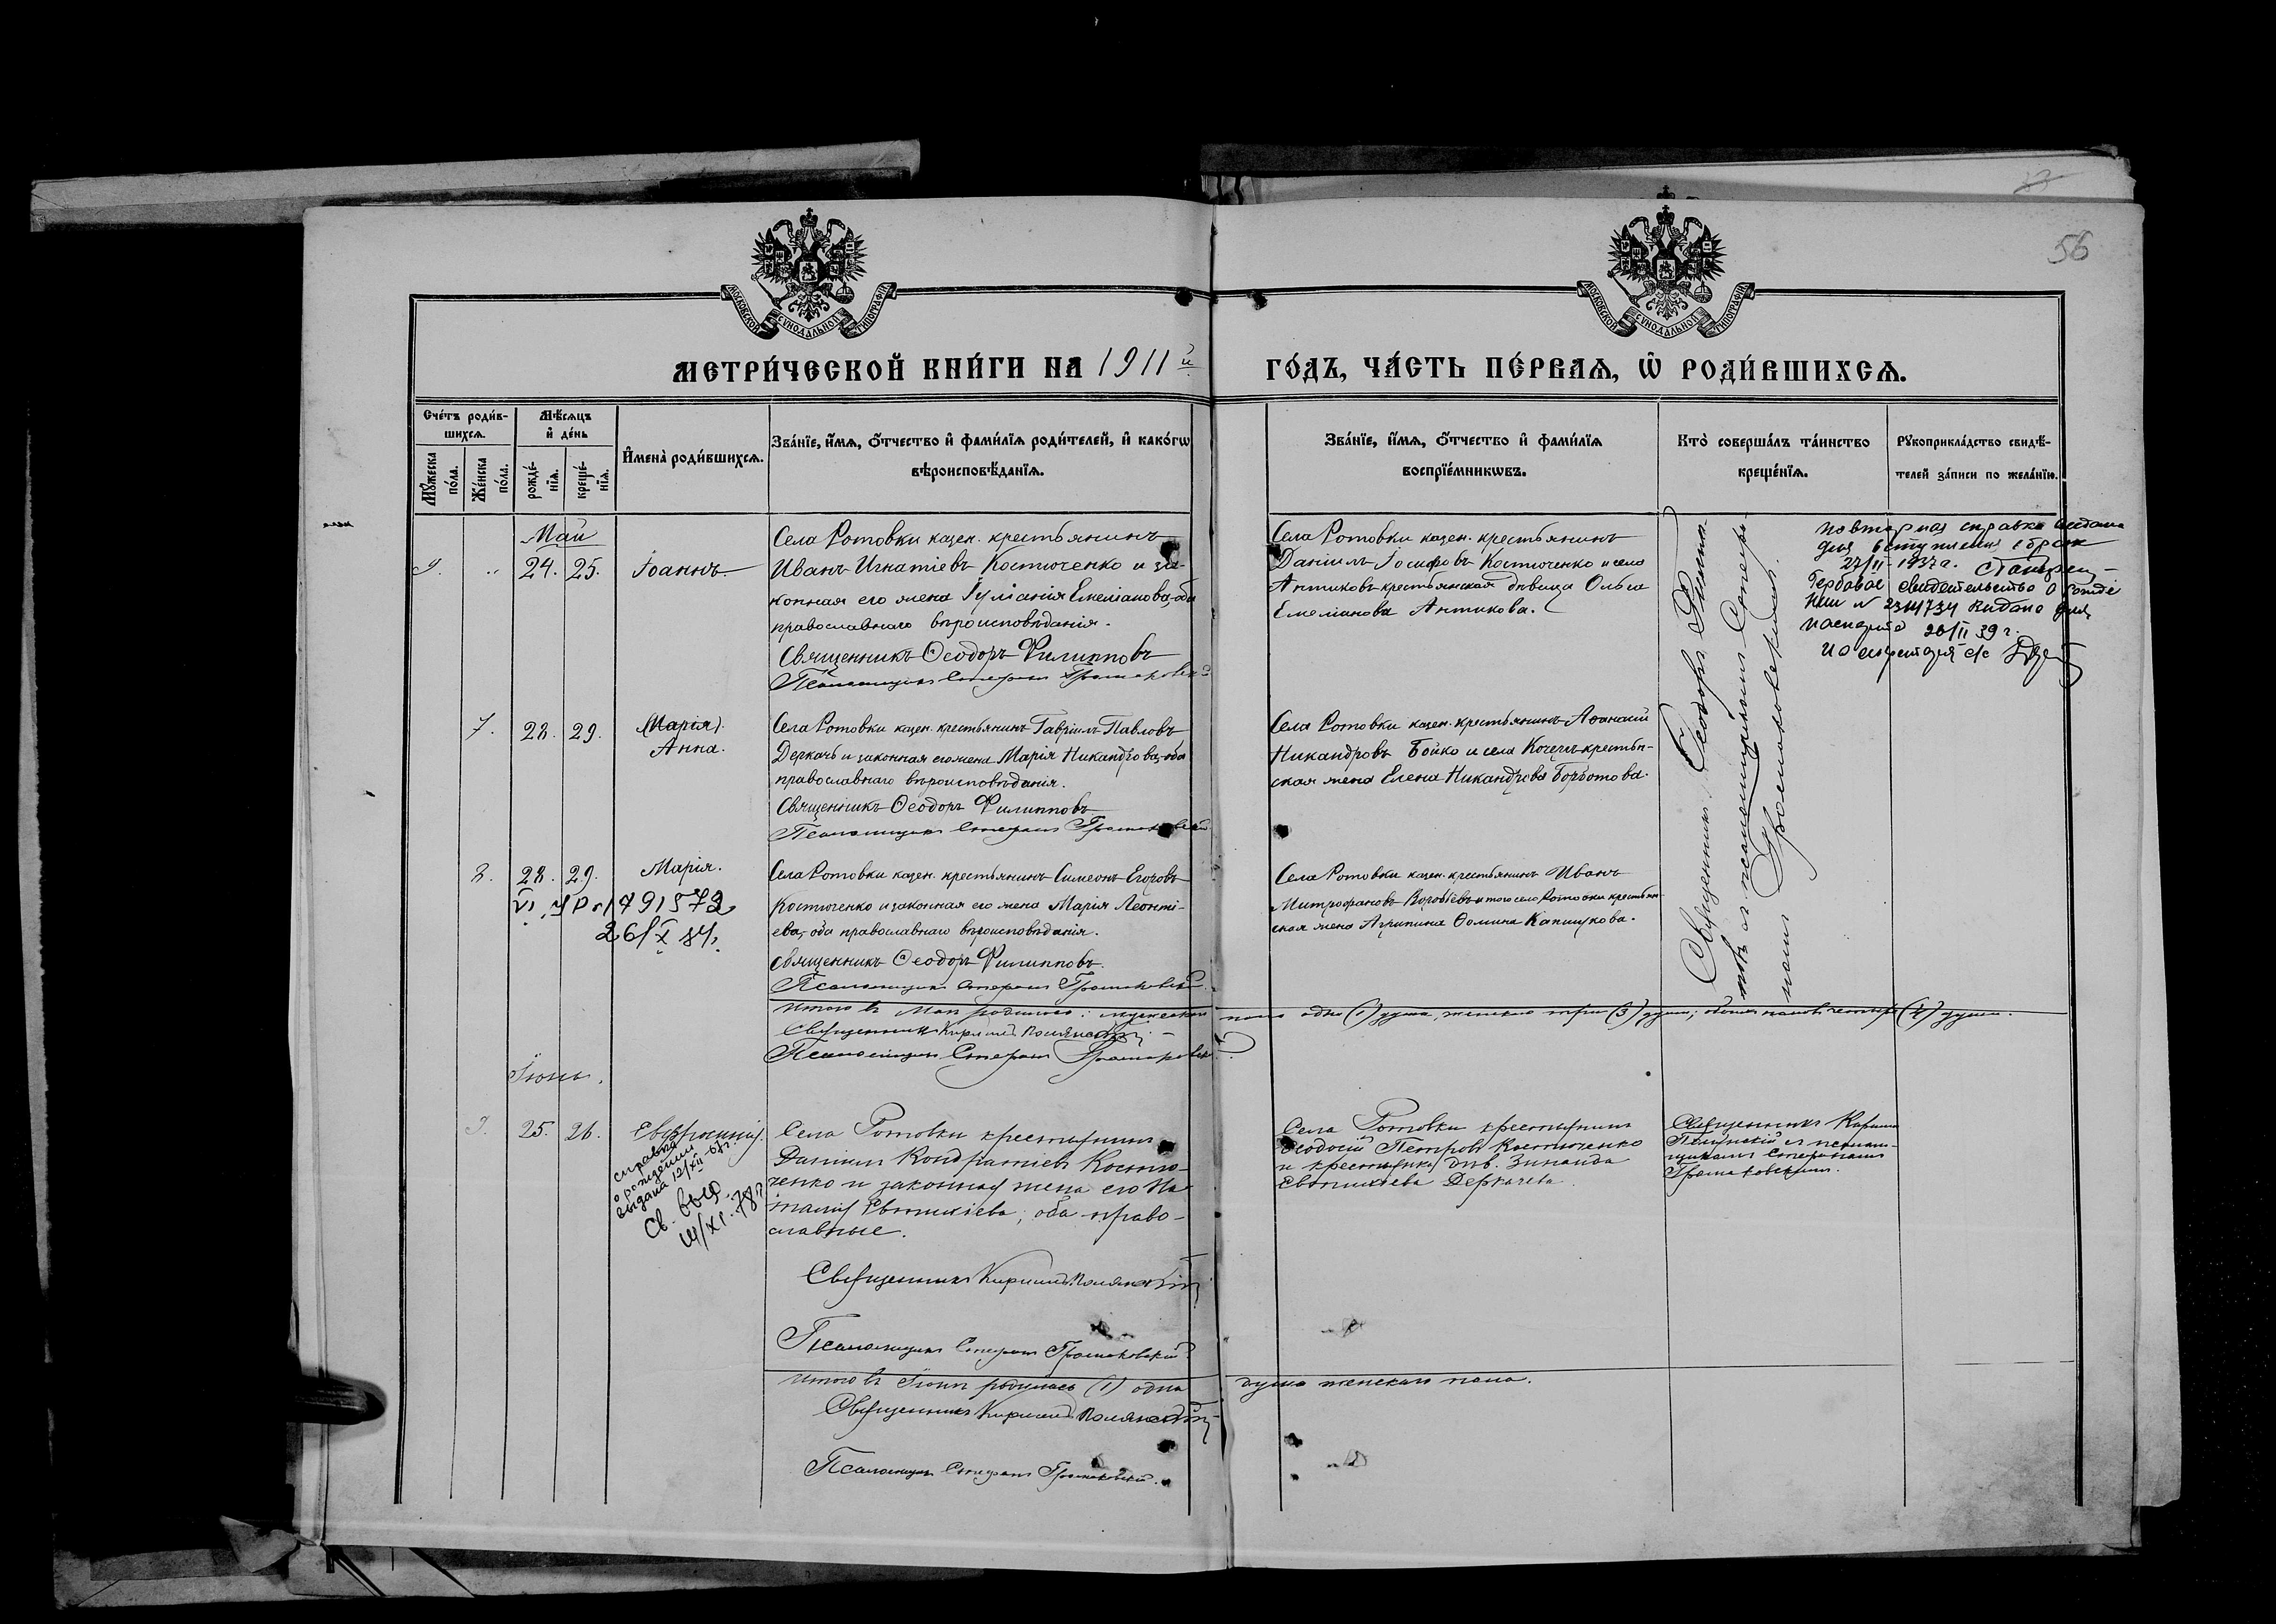 56
МОСКОВСКОЙ СУНОДАЛЬНОЙ ТИПОГРАФІИ
МОСКОВСКОЙ СУНОДАЛЬНОЙ ТИПОГРАФІИ
МЕТРИ́ЧЕСКОЙ КНИ́ГИ НА 1911й
ГО́ДЪ, ЧА́СТЬ ПЕ́РВАѦ, Ѽ РОДИ́ВШИХСѦ.
Сче́тъ роди́в-
шихсѧ.
Мꙋ́жеска по́ла.
Же́нска по́ла.
Мѣ́сѧцъ
и҆ де́нь
рожде́-
нїѧ.
креще́-
нїѧ.
И҆мена̀ роди́вшихсѧ.
Зва́нїе, и҆́мѧ, ѻ҆́тчество и҆ фами́лїѧ роди́телей, и҆ како́гѡ
вѣроисповѣ́данїѧ.
Зва́нїе, и҆́мѧ, ѻ҆́тчество и҆ фами́лїѧ
воспрїе́мникѡвъ.
Кто̀ соверша́лъ та́инство
креще́нїѧ.
Рꙋкоприкла́дство свидѣ́-
телей за́писи по жела́нїю.
Май
9. „ 24. 25. Іоаннъ.
Села Ротовки казен. крестьянинъ
Иванъ Игнатіевъ Костюченко и за-
конная его жена Іуліанія Емеліанова, оба
православнаго вѣроисповѣданія.
Священникъ Ѳеодоръ Филипповъ
Псаломщикъ Стефанъ
Села Ротовки казен. крестьянинъ
Даніилъ Іосифовъ Костюченко и села
Антиковъ крестьянская дѣвица Ольга
Емеліанова Антикова.
Священникъ Ѳеодоръ Филип-
повъ съ псаломщикомъ Стефа-
номъ
повторная справка выдана
для вступления в брак
27/II-1937 г.
Гербовое свидетельство о рожде
нии № 2314734 выдано для
паспорта 26/II 39 г.
7. 28. 29. (Марія).
Анна.
Села Ротовки казен. крестьянинъ Гавріилъ Павловъ
Деркачъ и законная его жена Марія Никандрова, оба
православнаго вѣроисповѣданія.
Священникъ Ѳеодоръ Филипповъ
Псаломщикъ Стефанъ
Села Ротовки казен. крестьянинъ Аѳанасій
Никандровъ Бойко и села Кочетъ крестьян-
ская жена Елена Никандрова Борботова.
8. 28. 29. Марія.
791572
26/X
Села Ротовки казен. крестьянинъ Симеонъ Егоровъ
Костюченко и законная его жена Марія Леонті-
ева, оба православнаго вѣроисповѣданія.
Священникъ Ѳеодоръ Филипповъ.
Псаломщикъ Стефанъ
Села Ротовки казен. крестьянинъ Иванъ
Митрофановъ Воробьевъ и того села Ротовки крестьян-
ская жена Агрипина Ѳомина
Итого въ Маѣ родилось: мужескаго пола одна (1) душа, женскаго три (3) души, обоихъ половъ четыре (4) души.
Священникъ Кириллъ
Псаломщикъ Стефанъ
Іюнь.
9. 25. 26. Евфросинія.
справка
о рождении
выдана 12/XII
Св. выд.
Села Ротовки крестьянинъ
Даніилъ Кондратіевъ Костю-
ченко и законная жена его На-
талія Евтихіева; оба право-
славные.
Священникъ Кириллъ
Псаломщикъ Стефанъ
Села Ротовки крестьянинъ
Ѳеодосій Петровъ Костюченко
и крестьянка дѣв. Зинаида
Евтихіева Деркачева
Священникъ Кириллъ
съ псалом-
щикомъ Стефаномъ
Итого въ Іюнѣ родилась (1) одна душа женскаго пола.
Священникъ Кириллъ
Псаломщикъ Стефанъ